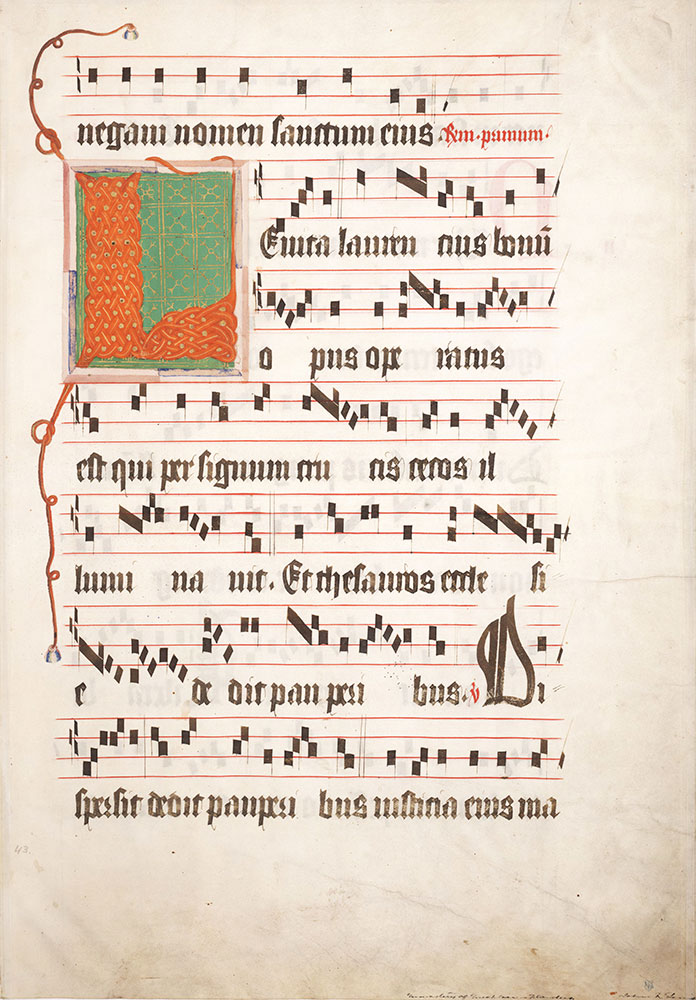 negani nomen sanctum eius Rm. primum.
Leuita lauren cius bonū
o pus ope ratus
est qui per signum cru cis cecos il
lumi na uit. Et thesauros eccle si
e de dit pauperi bus. v Di
spersit dedit pauperi bus iusticia eius ma
43.